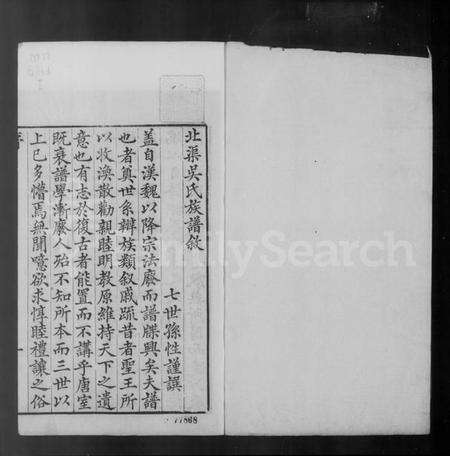 北渠吳氏族譜敘
七世孫性謹譔
蓋自漢魏以降宗法廢而譜牒興矣夫譜
也者奠世系辨族類叙戚疏昔者聖王所
以收渙散勸親睦明教原維持天下之遺
意也有志於復古者能置而不講乎唐室
既衰譜學漸廢人殆不知所本而三世以
上已多懵焉無聞噫欲求惇睦禮讓之俗
一
77868
FamilySearch